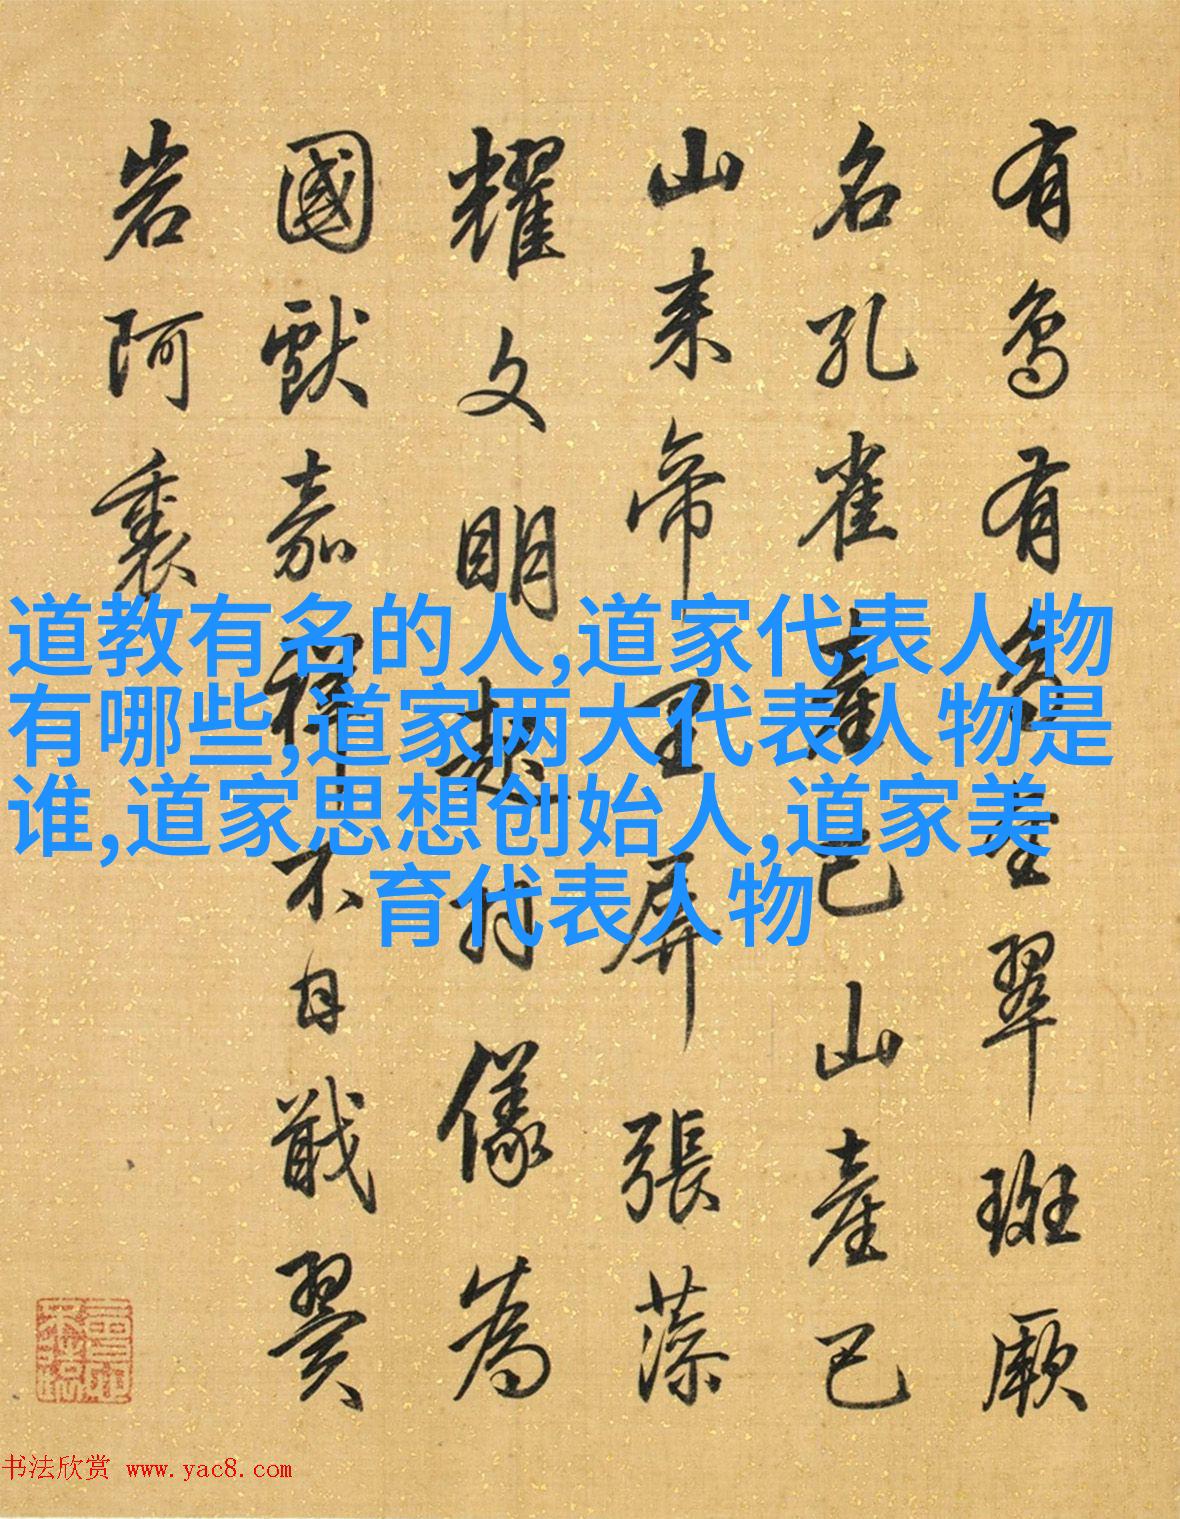 道教有名的人,道家代表人物
有哪些,道家两大代表人物是
谁,道家思想创始人,道家美
育代表人物
有鳥有鳥金翠斑厥
名孔雀產巴山產巴
山来帝里屏張藻
耀文明起儀為
國獻嘉祥不自戢翼
岩阿裏
书法欣赏 www.yac8.com